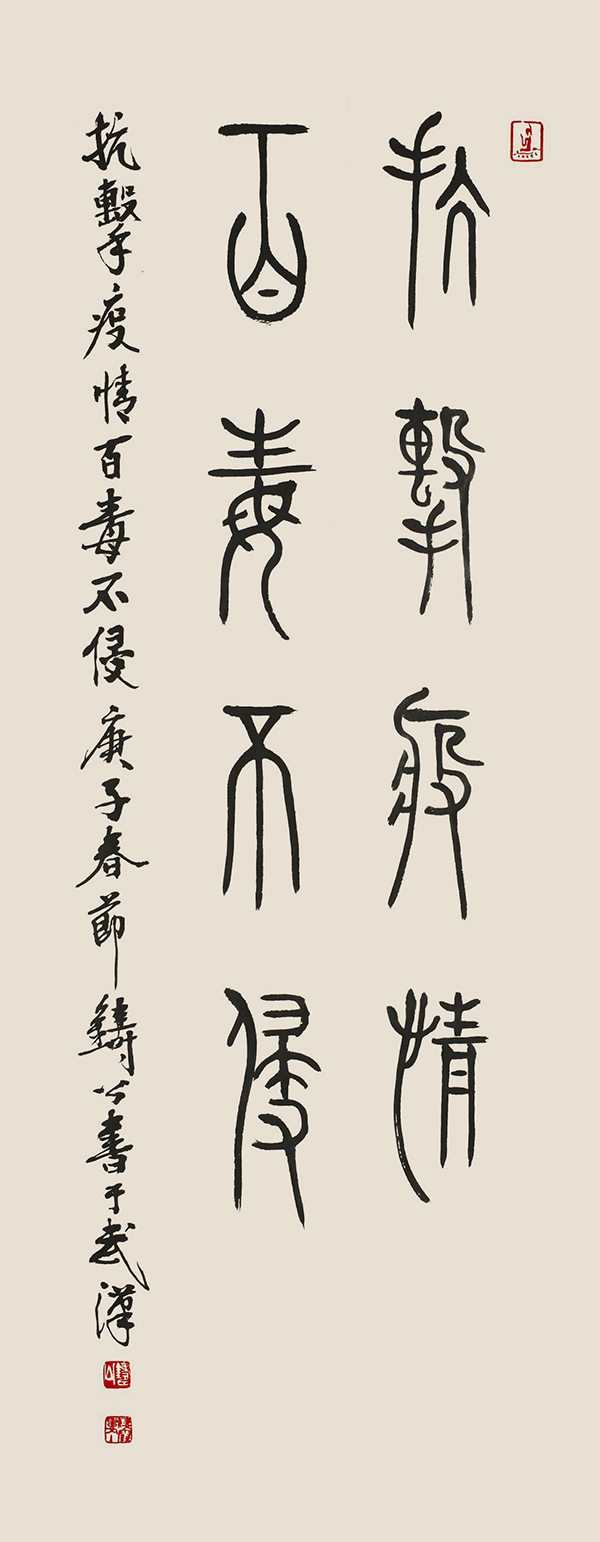 抗擊疫情
百毒不侵
抗擊疫情百毒不侵庚子春節鑄公書于武漢